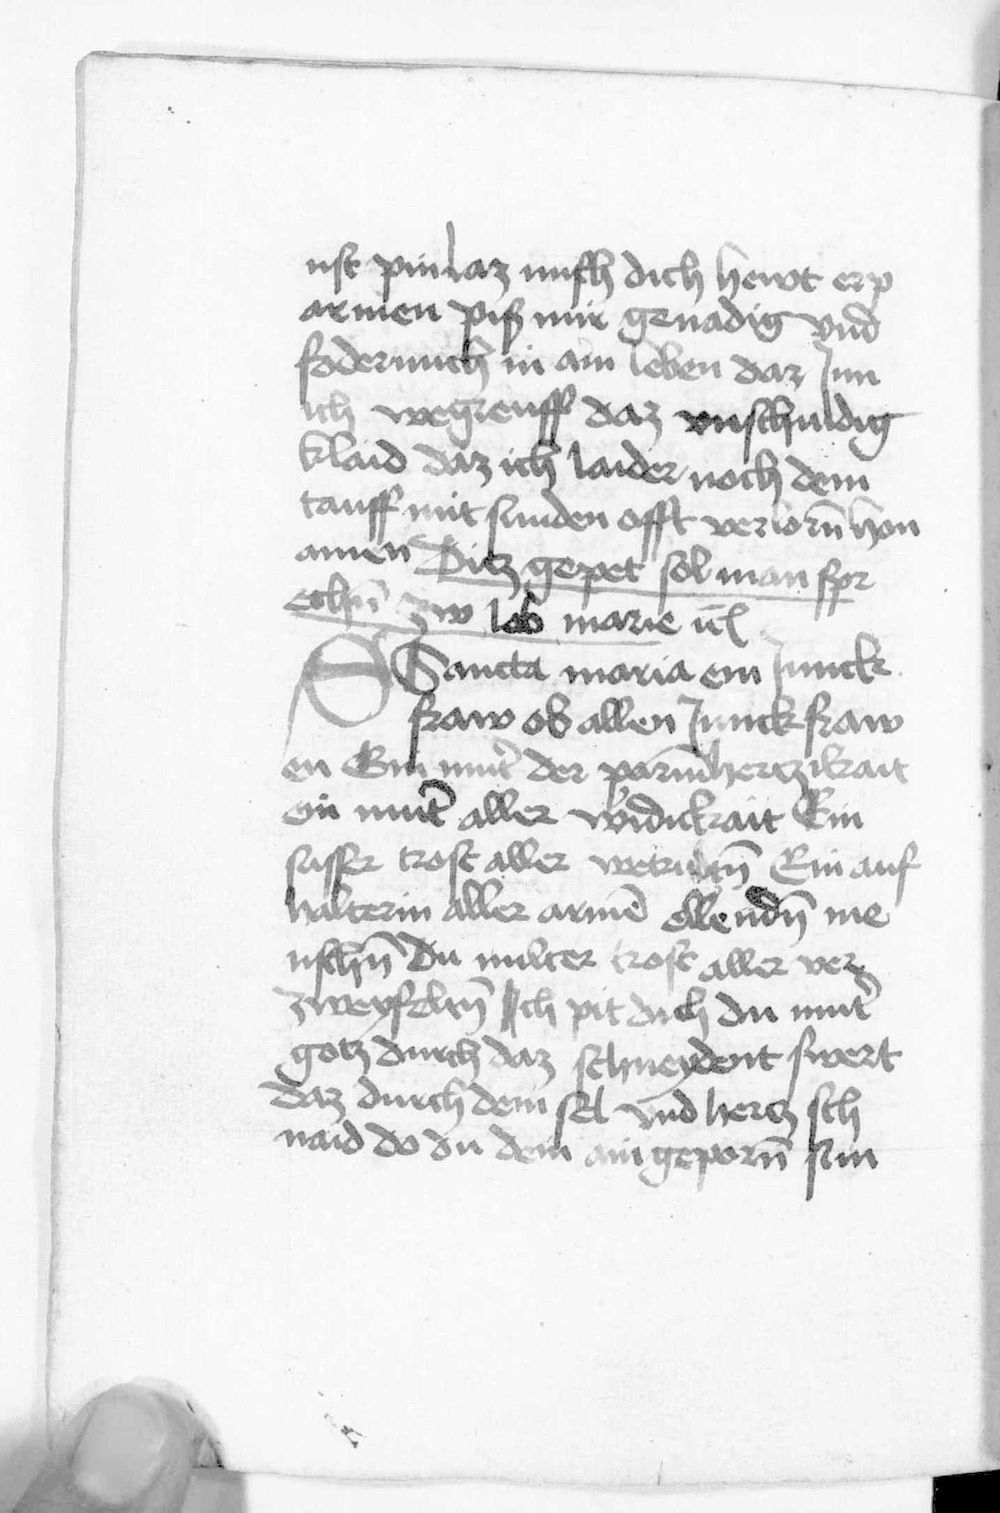 nst pin laz mich dich hewt erp
armen piß mir genadig vnd
foder mich in ain leben daz Inn
ich wegreuff daz vnschuldig
klaid daz ich laider noch dem
tauff mit sunden offt verlorn̄ hon
amen Ditz gepet sol man spr
echn̄ zw lob marie
O Sancta maria ein Junck
fraw ob allen Junckfraw
en Ein mut̄ der parm̄hertzikait
ein mut̄ aller wirdickait Ein
susser trost aller wetrubtn̄ Ein auf
halterin aller armē ellendn̄ me
nschn̄ Du milter trost aller ver
zweyfeltn̄ Ich pit dich du mut̄
gotz durch daz schneydent swert
daz durch dein sel vnd hertz sch
naid do du dein ain geporn̄ sun